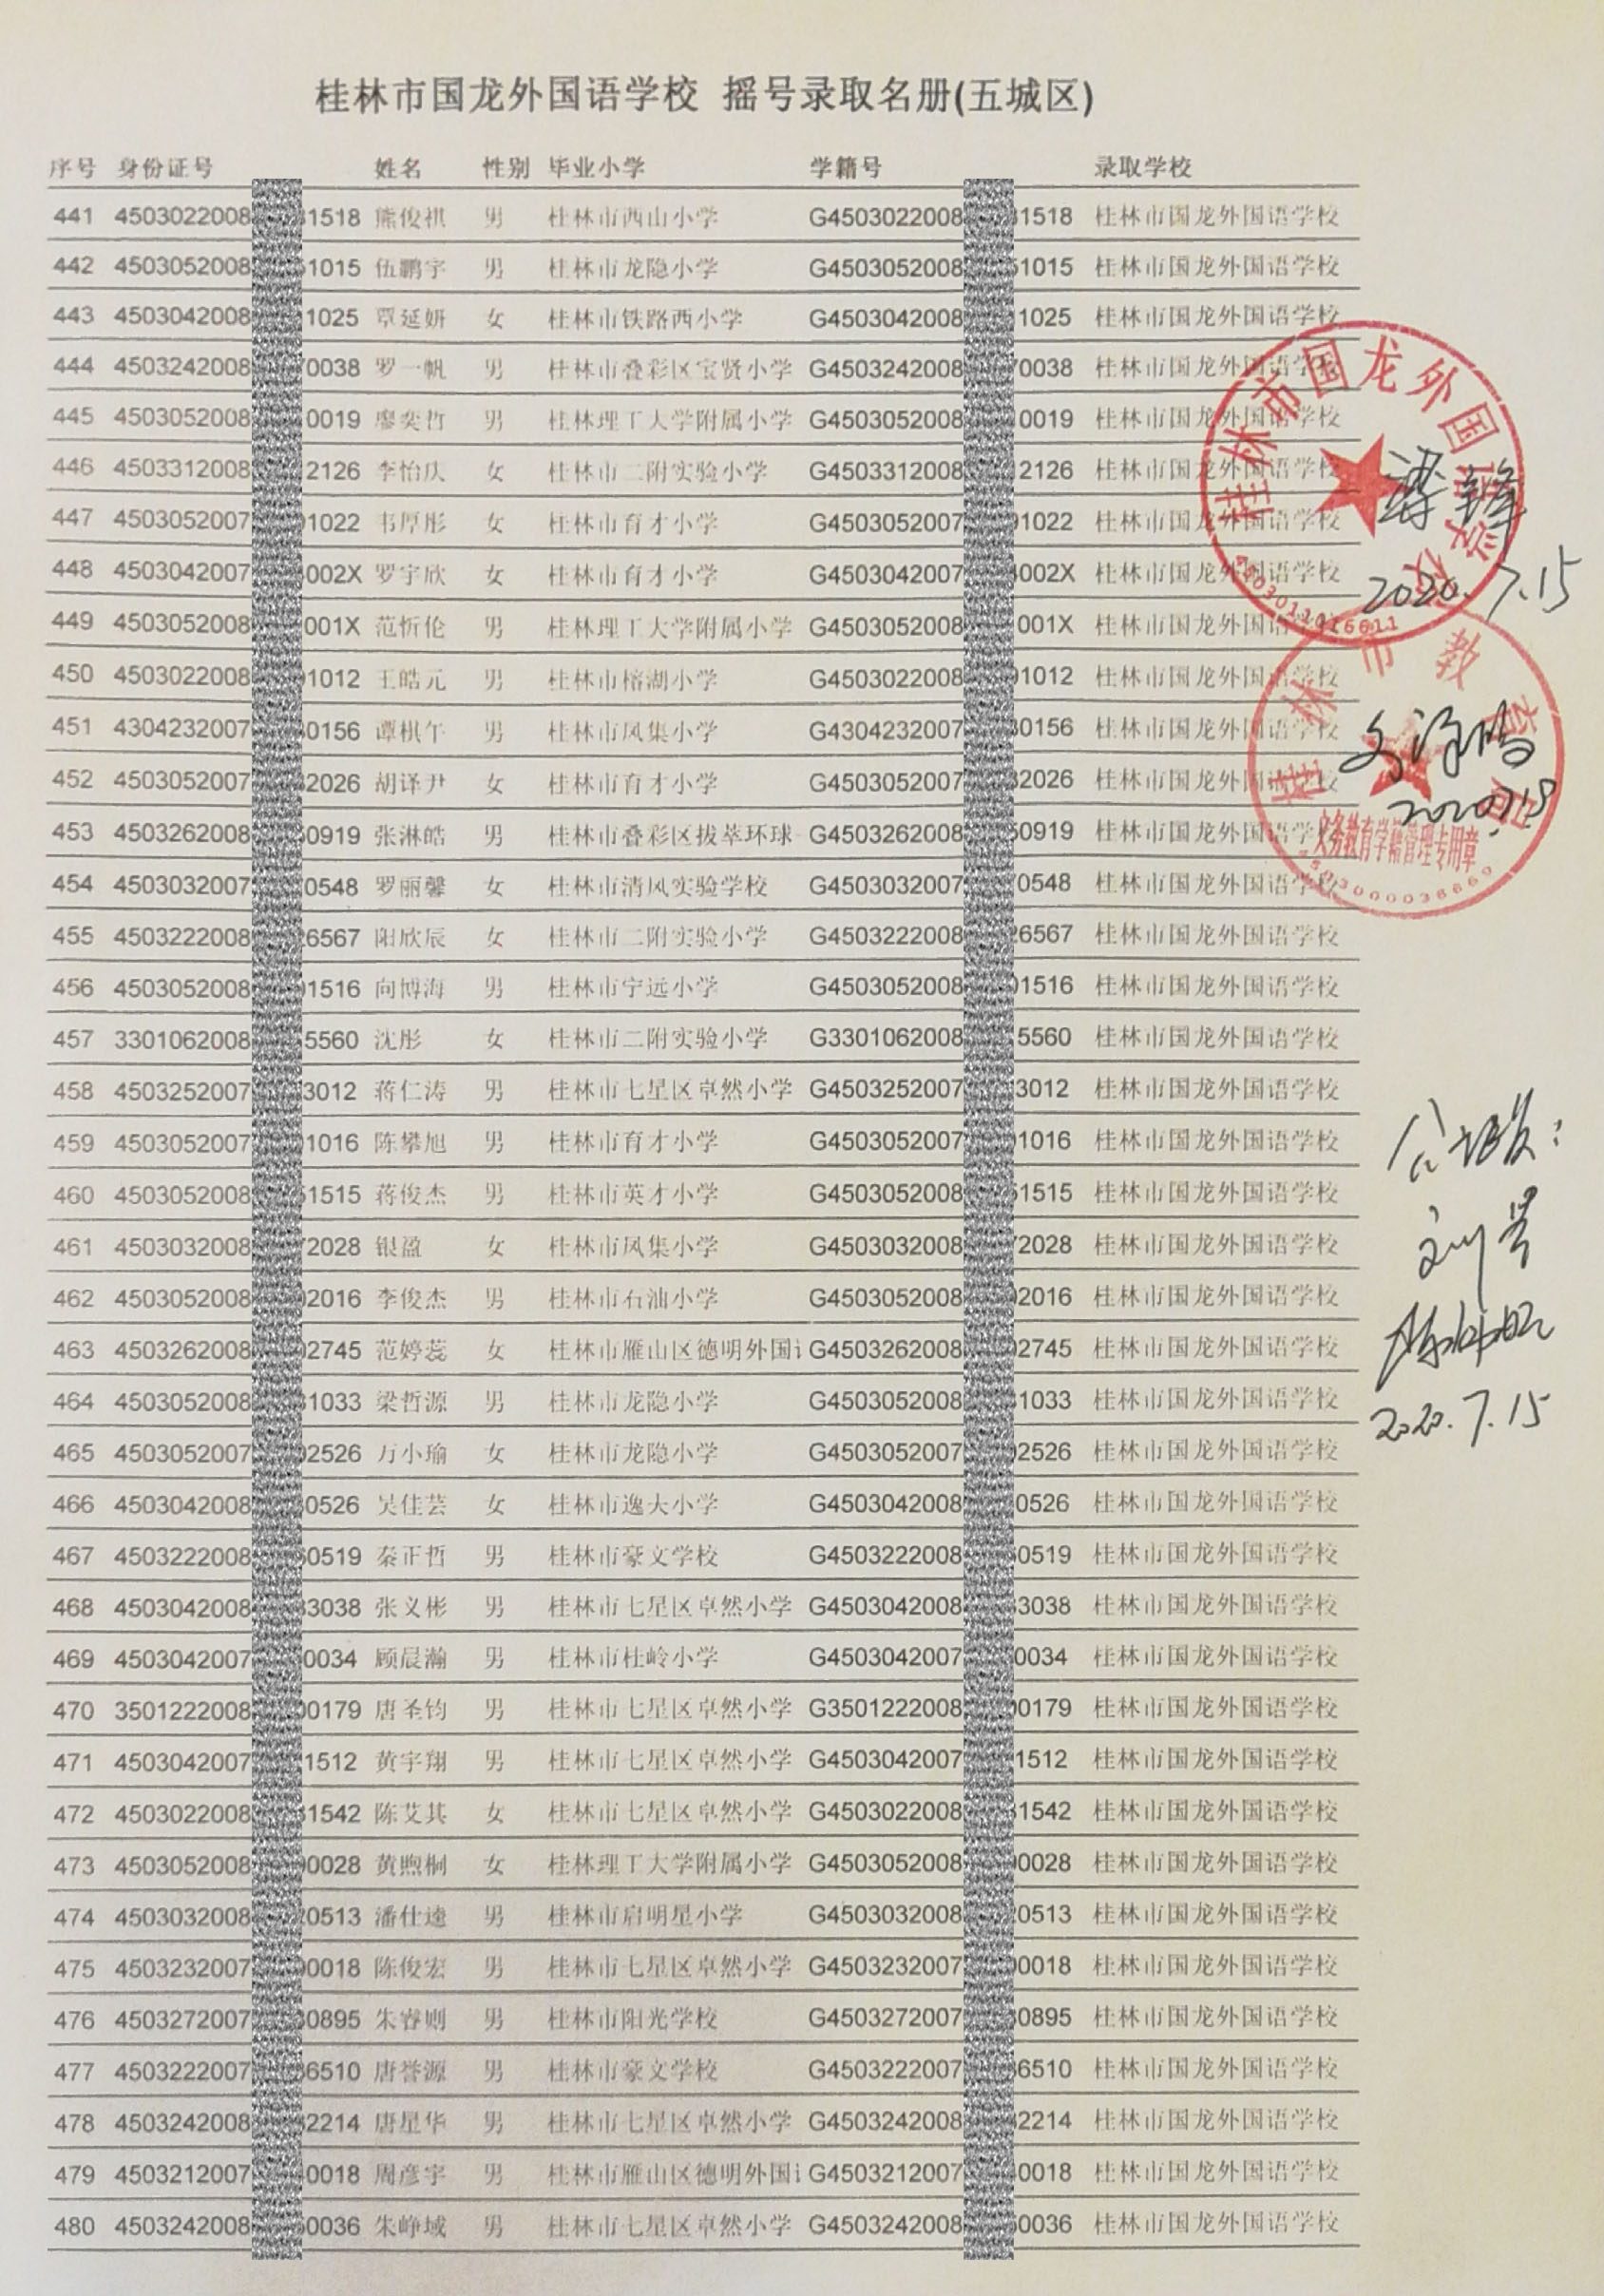 桂林市国龙外国语学校 摇号录取名册(五城区)
序号 身份证号 姓名 性别 毕业小学 学籍号 录取学校
441 4503022008 1518 熊俊祺 男 桂林市西山小学 G4503022008 1518 桂林市国龙外国语学校
442 4503052008 1015 伍鹏宇 男 桂林市龙隐小学 G4503052008 1015 桂林市国龙外国语学校
443 4503042008 1025 覃延妍 女 桂林市铁路西小学 G4503042008 1025 桂林市国龙外国语学校
444 4503242008 0038 罗一帆 男 桂林市叠彩区宝贤小学 G4503242008 0038 桂林市国龙外国语学校
445 4503052008 0019 廖奕哲 男 桂林理工大学附属小学 G4503052008 0019 桂林市国龙外国语学校
446 4503312008 2126 李怡庆 女 桂林市二附实验小学 G4503312008 2126 桂林市国龙外国语学校
447 4503052007 1022 韦厚彤 女 桂林市育才小学 G4503052007 1022 桂林市国龙外国语学校
448 4503042007 002X 罗宇欣 女 桂林市育才小学 G4503042007 002X 桂林市国龙外国语学校
449 4503052008 001X 范忻伦 男 桂林理工大学附属小学 G4503052008 001X 桂林市国龙外国语学校
450 4503022008 1012 王皓元 男 桂林市榕湖小学 G4503022008 1012 桂林市国龙外国语学校
451 4304232007 0156 谭棋午 男 桂林市凤集小学 G4304232007 0156 桂林市国龙外国语学校
452 4503052007 2026 胡译尹 女 桂林市育才小学 G4503052007 2026 桂林市国龙外国语学校
453 4503262008 0919 张淋皓 男 桂林市叠彩区拔萃环球 G4503262008 0919 桂林市国龙外国语学校
454 4503032007 0548 罗丽馨 女 桂林市清风实验学校 G4503032007 0548 桂林市国龙外国语学校
455 4503222008 6567 阳欣辰 女 桂林市二附实验小学 G4503222008 6567 桂林市国龙外国语学校
456 4503052008 1516 向博海 男 桂林市宁远小学 G4503052008 1516 桂林市国龙外国语学校
457 3301062008 5560 沈彤 女 桂林市二附实验小学 G3301062008 5560 桂林市国龙外国语学校
458 4503252007 3012 蒋仁涛 男 桂林市七星区卓然小学 G4503252007 3012 桂林市国龙外国语学校
459 4503052007 1016 陈攀旭 男 桂林市育才小学 G4503052007 1016 桂林市国龙外国语学校
460 4503052008 1515 蒋俊杰 男 桂林市英才小学 G4503052008 1515 桂林市国龙外国语学校
461 4503032008 2028 银盈 女 桂林市凤集小学 G4503032008 2028 桂林市国龙外国语学校
462 4503052008 2016 李俊杰 男 桂林市石油小学 G4503052008 2016 桂林市国龙外国语学校
463 4503262008 2745 范婷蕊 女 桂林市雁山区德明外国 G4503262008 2745 桂林市国龙外国语学校
464 4503052008 1033 梁哲源 男 桂林市龙隐小学 G4503052008 1033 桂林市国龙外国语学校
465 4503052007 2526 万小瑜 女 桂林市龙隐小学 G4503052007 2526 桂林市国龙外国语学校
466 4503042008 0526 吴佳芸 女 桂林市逸夫小学 G4503042008 0526 桂林市国龙外国语学校
467 4503222008 0519 秦正哲 男 桂林市豪文学校 G4503222008 0519 桂林市国龙外国语学校
468 4503042008 3038 张义彬 男 桂林市七星区卓然小学 G4503042008 3038 桂林市国龙外国语学校
469 4503042007 0034 顾晨瀚 男 桂林市杜岭小学 G4503042007 0034 桂林市国龙外国语学校
470 3501222008 0179 唐圣钧 男 桂林市七星区卓然小学 G3501222008 0179 桂林市国龙外国语学校
471 4503042007 1512 黄宇翔 男 桂林市七星区卓然小学 G4503042007 1512 桂林市国龙外国语学校
472 4503022008 1542 陈艾其 女 桂林市七星区卓然小学 G4503022008 1542 桂林市国龙外国语学校
473 4503052008 0028 黄煦桐 女 桂林理工大学附属小学 G4503052008 0028 桂林市国龙外国语学校
474 4503032008 0513 潘仕逵 男 桂林市启明星小学 G4503032008 0513 桂林市国龙外国语学校
475 4503232007 0018 陈俊宏 男 桂林市七星区卓然小学 G4503232007 0018 桂林市国龙外国语学校
476 4503272007 0895 朱睿则 男 桂林市阳光学校 G4503272007 0895 桂林市国龙外国语学校
477 4503222007 6510 唐誉源 男 桂林市豪文学校 G4503222007 6510 桂林市国龙外国语学校
478 4503242008 2214 唐星华 男 桂林市七星区卓然小学 G4503242008 2214 桂林市国龙外国语学校
479 4503212007 0018 周彦宇 男 桂林市雁山区德明外国 G4503212007 0018 桂林市国龙外国语学校
480 4503242008 0036 朱峥域 男 桂林市七星区卓然小学 G4503242008 0036 桂林市国龙外国语学校
桂林市国龙外国语学校
梁锋
2020.7.15
桂林市教育局
义务教育学籍管理专用章
2020.7.15